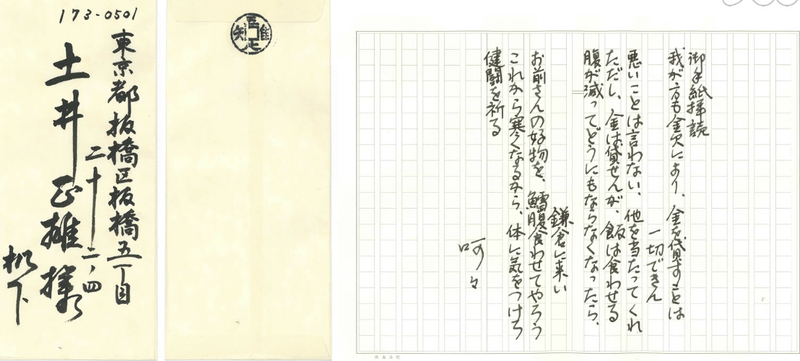 173-0501
東京都板橋区板橋五丁目
二十二ノ四
土井正雄様
机下
吾唯足知
御手紙拝読
我が方も金欠により、金を貸すことは
一切できん
悪いことは言わない、他を当たってくれ
ただし、金は貸せんが、飯は食わせる
腹が減ってどうにもならなくなったら、
鎌倉に来い
お前さんの好物を、鱈腹食わせてやろう
これから寒くなるから、体に気をつけろ
健闘を祈る
呵々